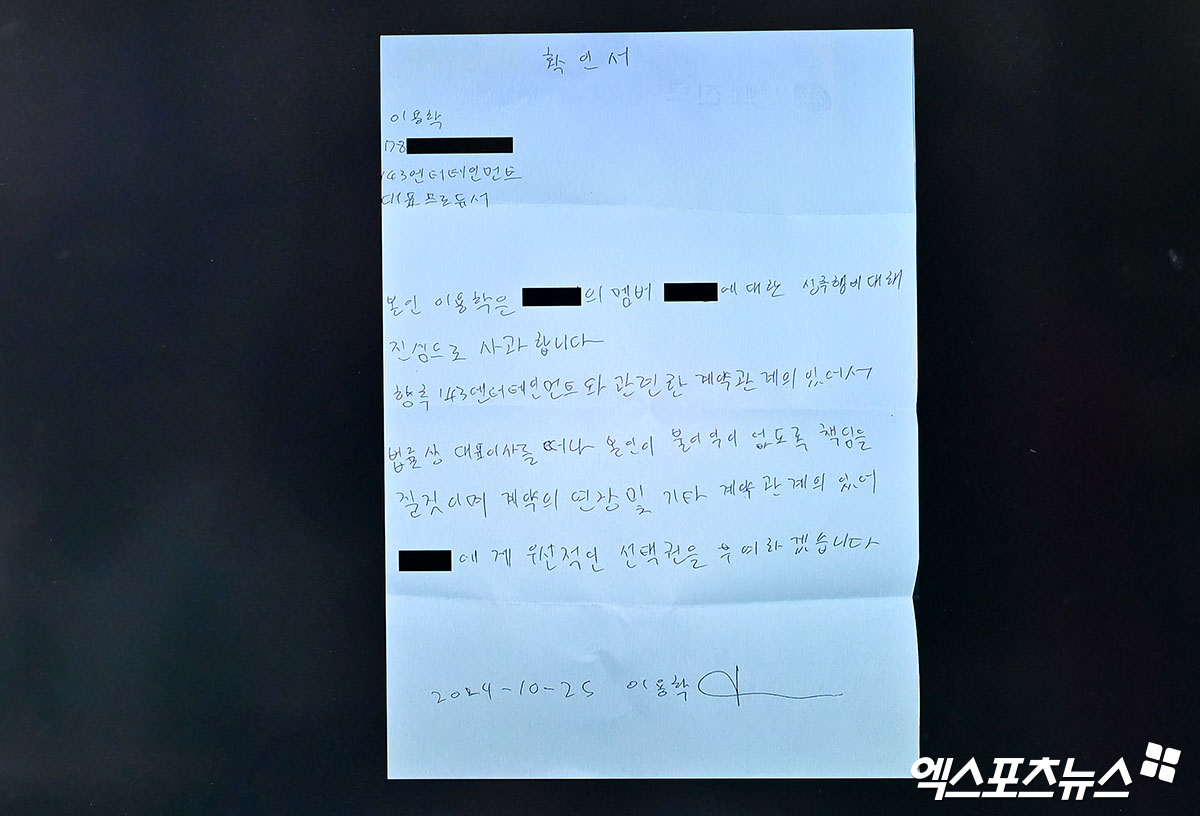 확인서
이용학
178
143엔터테인먼트
대표프로듀서
본인 이용학은 의 멤버 에 대한 성추행에대해
진심으로 사과합니다
향후 143엔터테인먼트와 관련한 계약관계의 있어서
법률상 대표이사를 떠나 본인이 불이익이 없도록 책임을
질것이며 계약의 연장 및 기타 계약관계의 있어
에게 우선적인 선택권을 부여하겠습니다
2024-10-25 이용학
엑스포츠뉴스